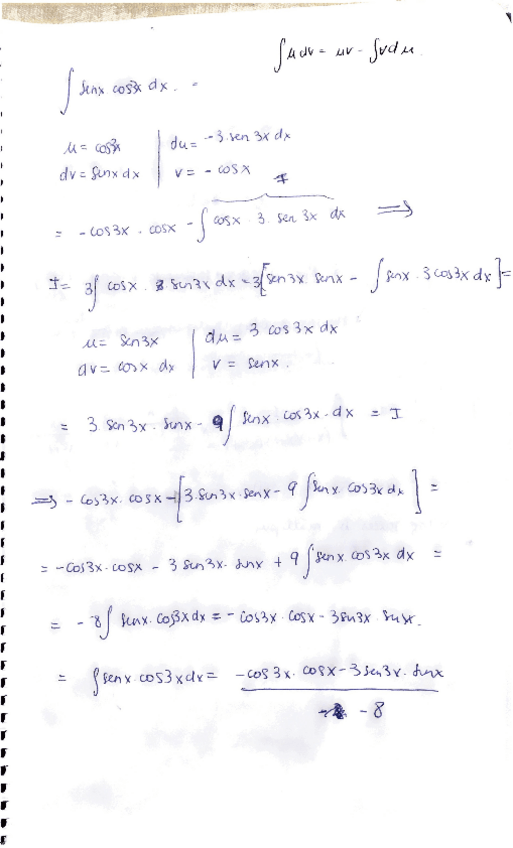 ∫u dv = uv - ∫v du
∫ senx cos3x dx. =
u = cos3x | du = -3 sen 3x dx
dv = senx dx | v = - cosx
I
= - cos3x . cosx - ∫ cosx . 3 . sen 3x dx ⟹
I = 3∫ cosx . sen3x dx = 3[sen3x. senx - ∫ senx . 3 cos3x dx] =
u = sen3x | du = 3 cos 3x dx
dv = cosx dx | v = senx.
= 3 sen 3x. senx - 9∫ senx cos3x . dx = I
⟹ - cos3x. cosx - [3. sen3x. senx - 9 ∫ senx. cos3x dx] =
= - cos3x. cosx - 3 sen3x. senx + 9∫ senx. cos3x dx =
= - 8∫ senx. cos3x dx = - cos3x . cosx - 3sen3x senx.
= ∫ senx cos3x dx = - cos 3x. cosx - 3 sen3x. senx
- 8